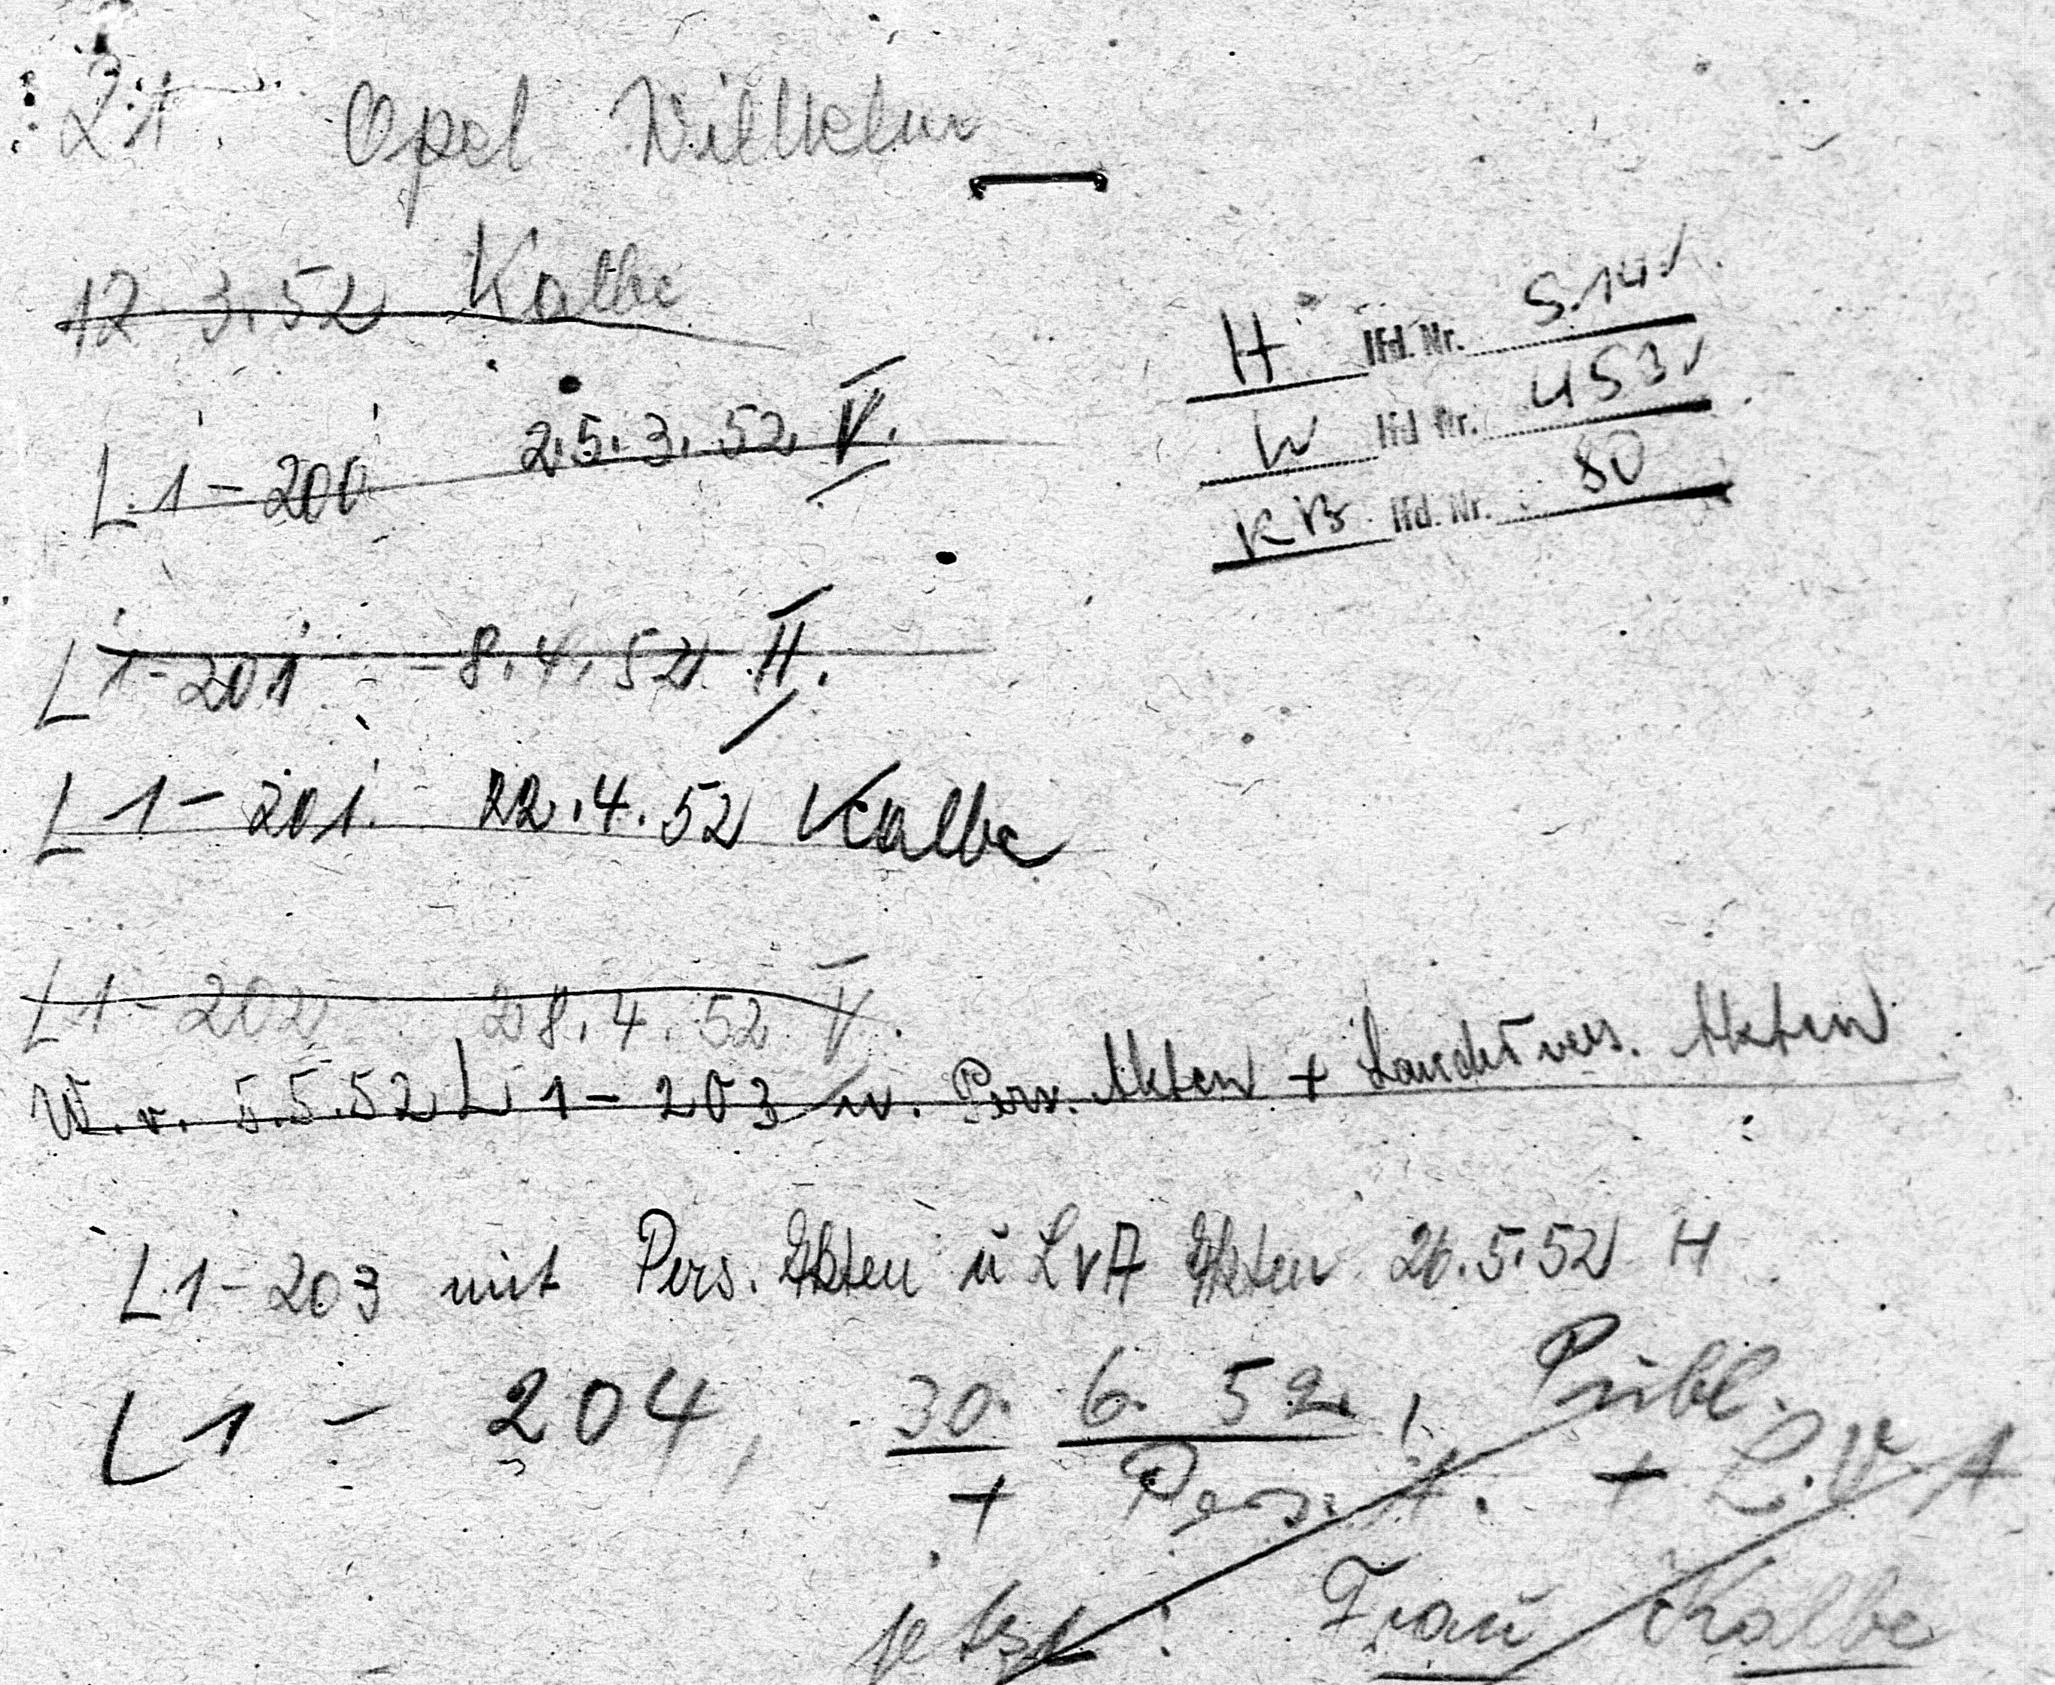 21. Opel Wilhelm
12.3.52 Kalbe
H lfd. Nr. S.141.
L 1-200 25.3.52 V.
W lfd. Nr. 453
KB lfd. Nr. 80
L 1-201 8.4.52 H.
L 1-201. 22.4.52 Kalbe
L1-202 28.4.52 V.
W.v. 5.5.52 L 1-203 m. Pers. Akten + Landesvers. Akten
L.1-203 mit Pers. Akten u LVA Akten 26.5.52 H
L 1 - 204, 30. 6. 52.,
+ Pers. A. + L.V.A
jetzt: Frau Kalbe